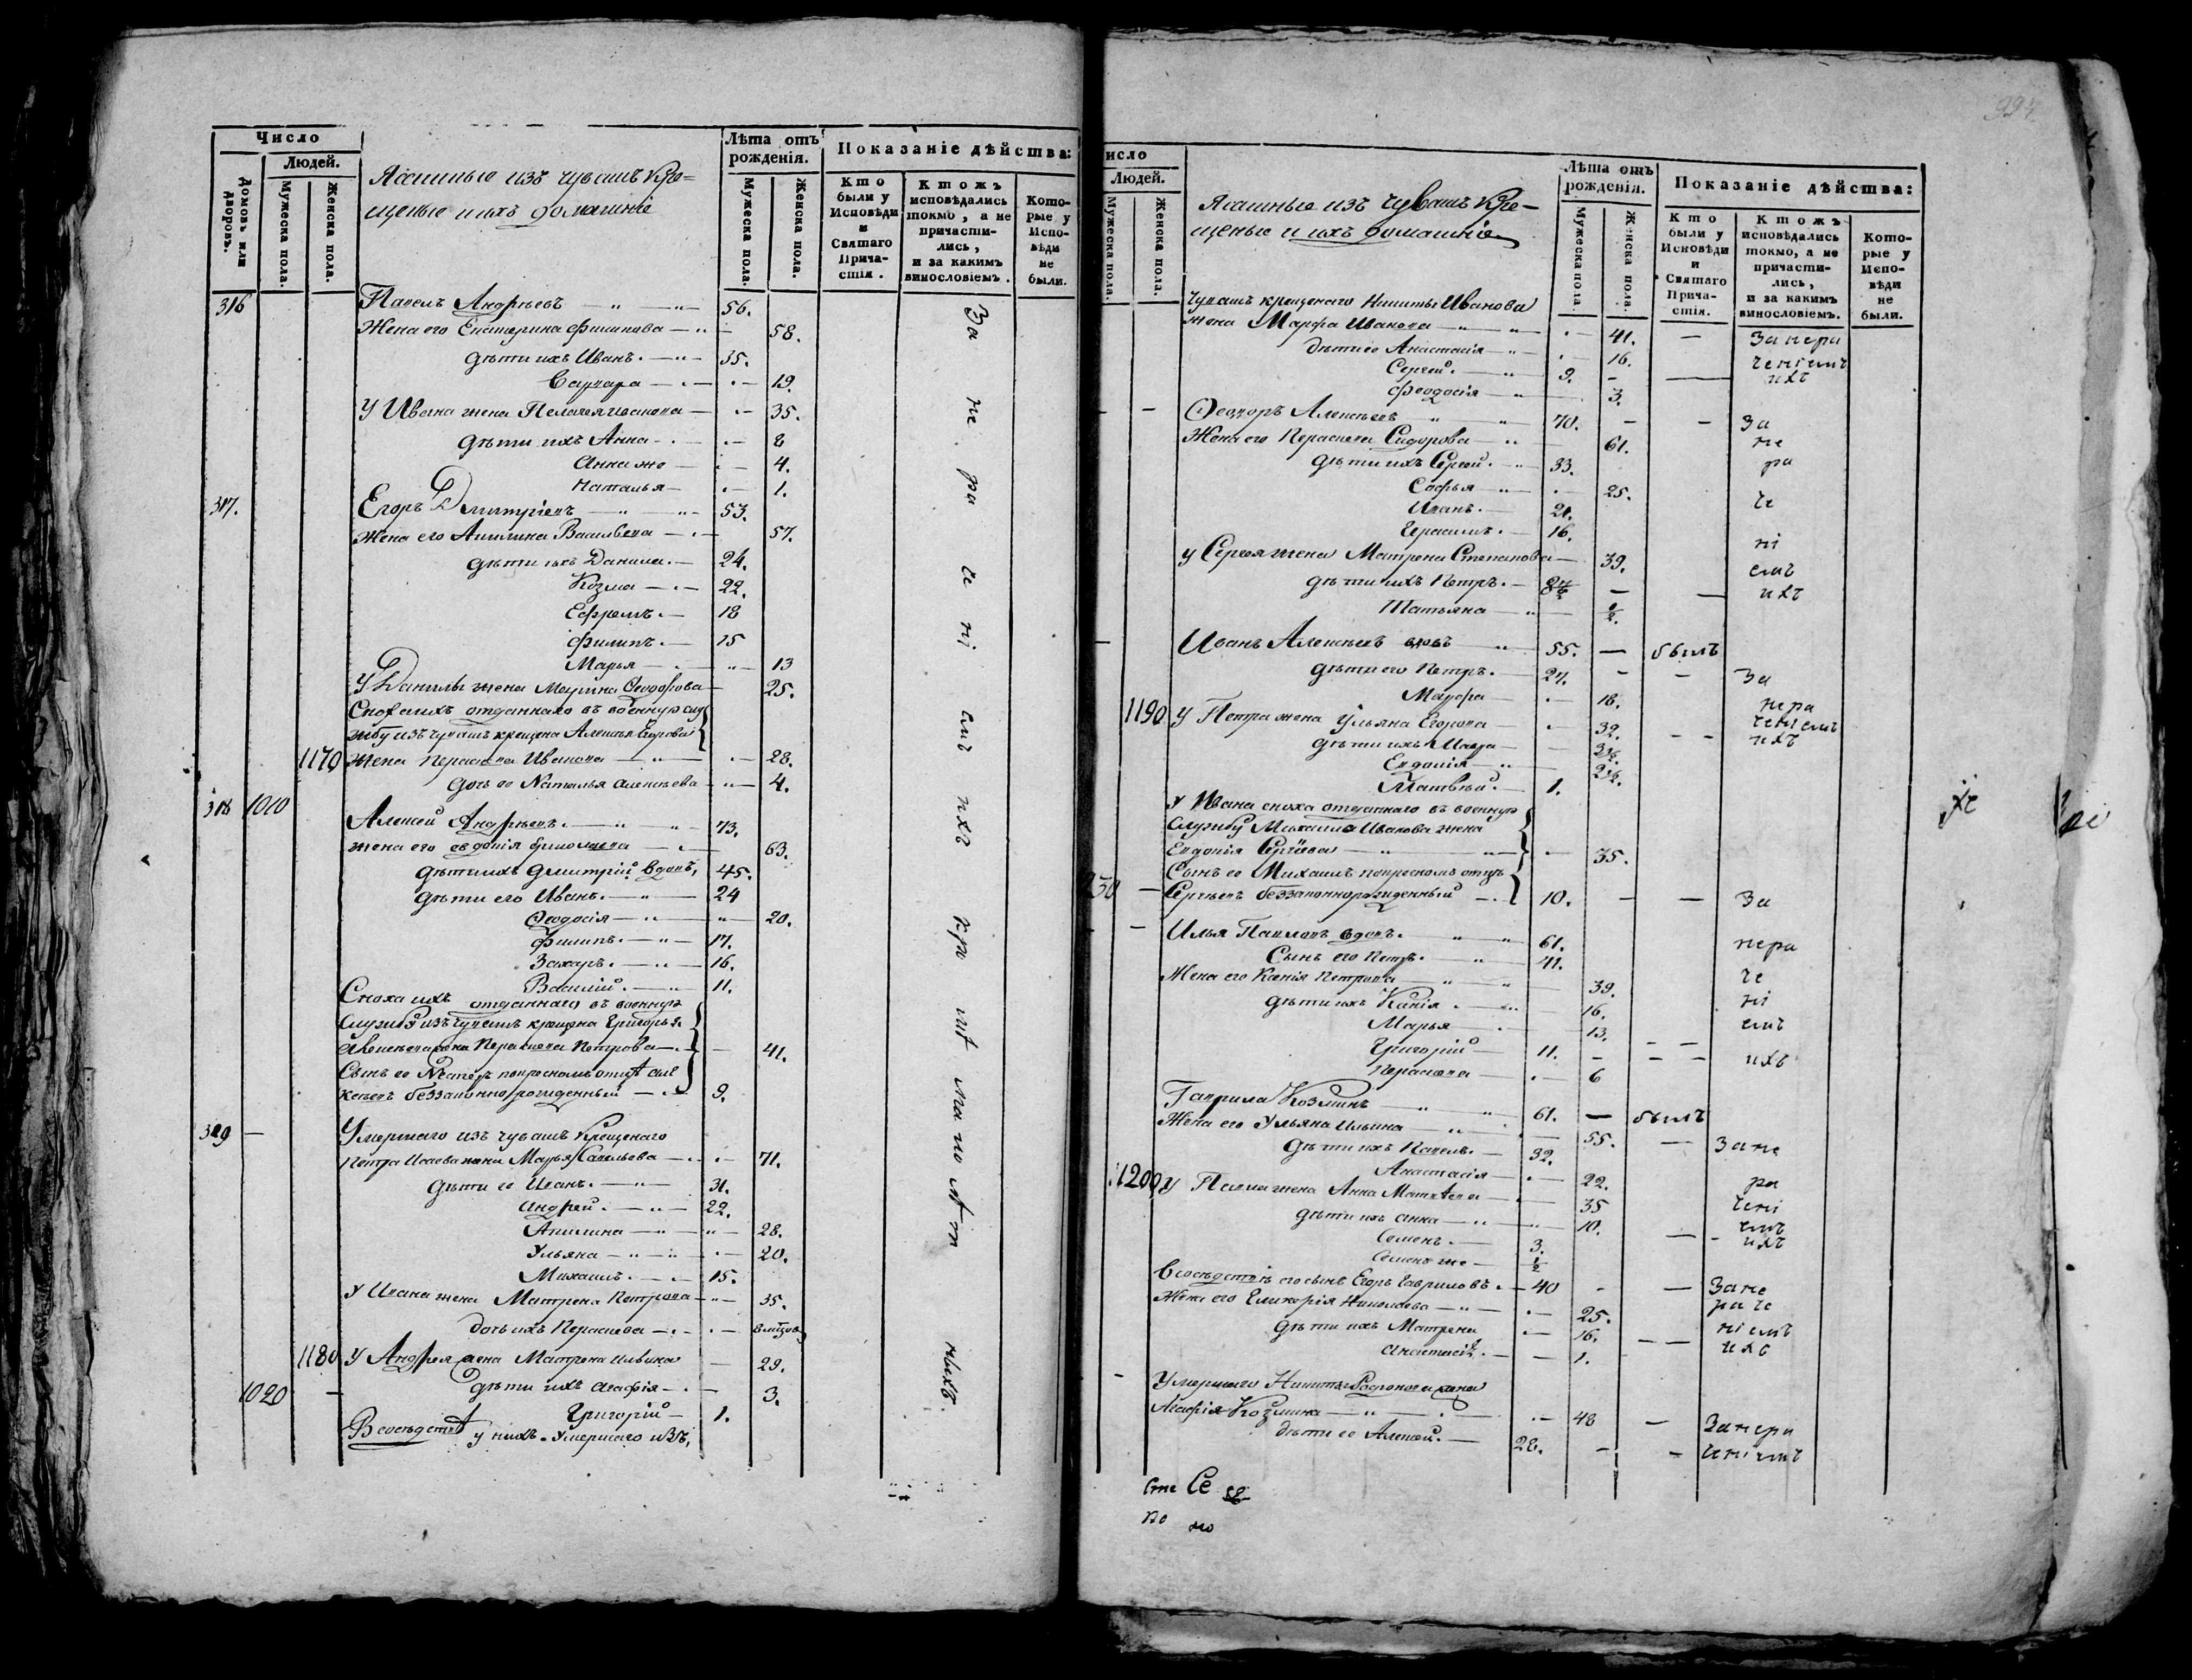 Число
Людей.
Домовъ или дворовъ.
Мужеска пола.
Женска пола.
Ясашные изъ чувашъ кре=
щеные и ихъ домашніе
Лѣта отъ рожденія.
Мужеска пола.
Женска пола.
Показаніе дѣйства:
Кто были у Исповѣди и Святаго Причастія.
Ктожъ исповѣдались токмо, а не причастились, и за какимъ винословіемъ.
Которые у Исповѣди не были.
316 Павелъ Андрѣевъ 56.
Жена его Екатерина Филипова 58.
дѣти ихъ Иванъ. 35.
Варвара 19.
У Ивана жена Пелагея Иванова 35.
дѣти ихъ Анна 8
Анна же 4.
Наталья 1.
317. Егоръ Дмитріевъ 53.
Жена его Акилина Васильева 57.
дѣти ихъ Данила. 24.
Козма 22.
Ефремъ. 18
Филипъ. 15
Марья 13
У Данилы жена Марина Федорова 25.
Сноха ихъ отданнаго въ военную слу
жбу изъ чувашъ крещена Алексѣя Егорова
1170 жена Парасковья Иванова 28.
дочь ее Наталья Алексѣева 4.
318 1010 Алексей Андрѣевъ. 73.
жена его Евдокія 63.
дѣти ихъ Дмитрій вдовъ, 45.
дѣти его Иванъ. 24
Ѳеодосія 20.
Филипъ. 17.
Захаръ. 16.
Василій. 11.
Сноха ихъ отданнаго въ военную
службу изъ чувашъ крещена Григорья
Алексѣева жена Параскева Петрова 41.
Сынъ ее Несторъ покресномъ отцѣ Але
ксѣевъ беззаконнорожденный 9.
319 Умершаго изъ чувашъ крещенаго
Петра Исаева жена Марья Савельева 71.
дѣти ее Иванъ. 31.
Андрей. 22.
Акилина 28.
Ульяна 20.
Михаилъ. 15.
У Ивана жена Матрена Петрова 35.
дочь ихъ Параскева
1180 У Андрея жена Матрена Ильина 29.
1020 дѣти ихъ Агафія 3.
Григорій 1.
В сосѣдствѣ у нихъ Умершаго изъ,
За не ра че ні емъ ихъ
нихъ.
994
исло
Людей.
Мужеска пола.
Женска пола.
Ясашные изъ чувашъ кре-
щеные и ихъ домашніе
Лѣта отъ рожденія.
Мужеска пола
Женска пола.
Показаніе дѣйства:
Кто были у Исповѣди и Святаго Причастія.
Ктожъ исповѣдались токмо, а не причастились, и за какимъ винословіемъ.
Которые у Исповѣди не были.
Чувашъ крещенаго Никиты Иванова
жена Марфа Иванова 41. За нера
дѣти ее Анастасія 16. ченіемъ
Сергей. 9. ихъ
Ѳеодосія 3.
Ѳедоръ Алексѣевъ 70. За
Жена его Параскева Сидорова 61. не
дѣти ихъ Сергей. 33. ра
Софья 25. че
Иванъ.
Герасимъ. 16.
У Сергея жена Матрена Степанова 39. ні
дѣти ихъ Петръ. емъ
Татьяна ½. ихъ
Иванъ Алексѣевъ вдовъ 55. былъ
дѣти его Петръ. 27. За
Марфа 18. нера
1190 У Петра жена Ульяна Егорова 32. ченіемъ
дѣти ихъ Мавра ихъ
Евдокія
Матвѣй. 1.
У Ивана сноха отданнаго въ военную
службу Михаила Иванова жена
Евдокія Сергѣева 35.
Сынъ ее Михаилъ покресномъ отцѣ
Сергѣевъ беззаконнорожденный 10. За
Илья Павловъ вдовъ. 61. нера
Сынъ его Петръ. 41. че
Жена его Ксенія Петрова 39. ні
дѣти ихъ Ксенія. 16. емъ
Марья 13.
Григорій 11. ихъ
Параскева 6
Гаврила Козминъ 61. былъ
Жена его Ульяна Ильина 55. За не
дѣти ихъ Павелъ. 32.
Анастасія 22. ра
1200 У Павла жена Анна Матвѣева 35 чені
дѣти ихъ Анна 10. емъ
Семенъ. 3. ихъ
Семенъ же ½
В сосѣдствѣ его сынъ Егоръ Гавриловъ. 40 За не
Жена его Гликерія Николаева 25. ра че
дѣти ихъ Матрена 16. ніемъ
Анастасія. 1. ихъ
Умершаго Никиты жена
Агафія Козмина 48 За нера
дѣти ее Алексей. 28. ченіемъ